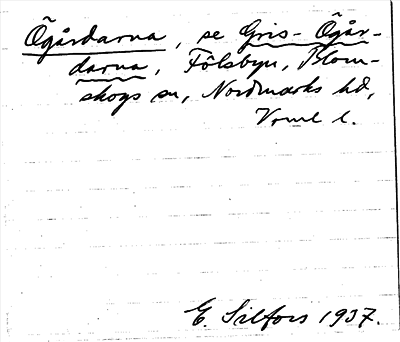 Ögårdarna, se Gris-Ögår-
darna, Fölsbyn, Blom-
skogs sn, Nordmarks hd,
Vrml l.
E. Silfors 1937.